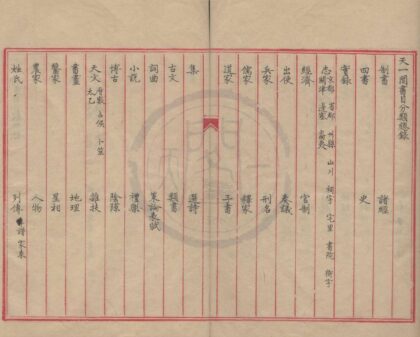 天一閣書目分類總錄
制書 諸經
四書 史
實錄
志 京都 省郡 州縣 山川 祠宇 宅里 書院 衙宇
關津 邊塞 島夷
經濟 官制
出使 奏議
兵家 刑名
儒家 釋家
道家 子書
集 選詩
古文 類書
詞曲 策論表賦
小說 禮樂
博古 陰隲
天文 曆數 占候 卜筮 太乙 雜技
書畫 地理
醫家 星相
農家 人物
姓氏 列傳 譜 家乘